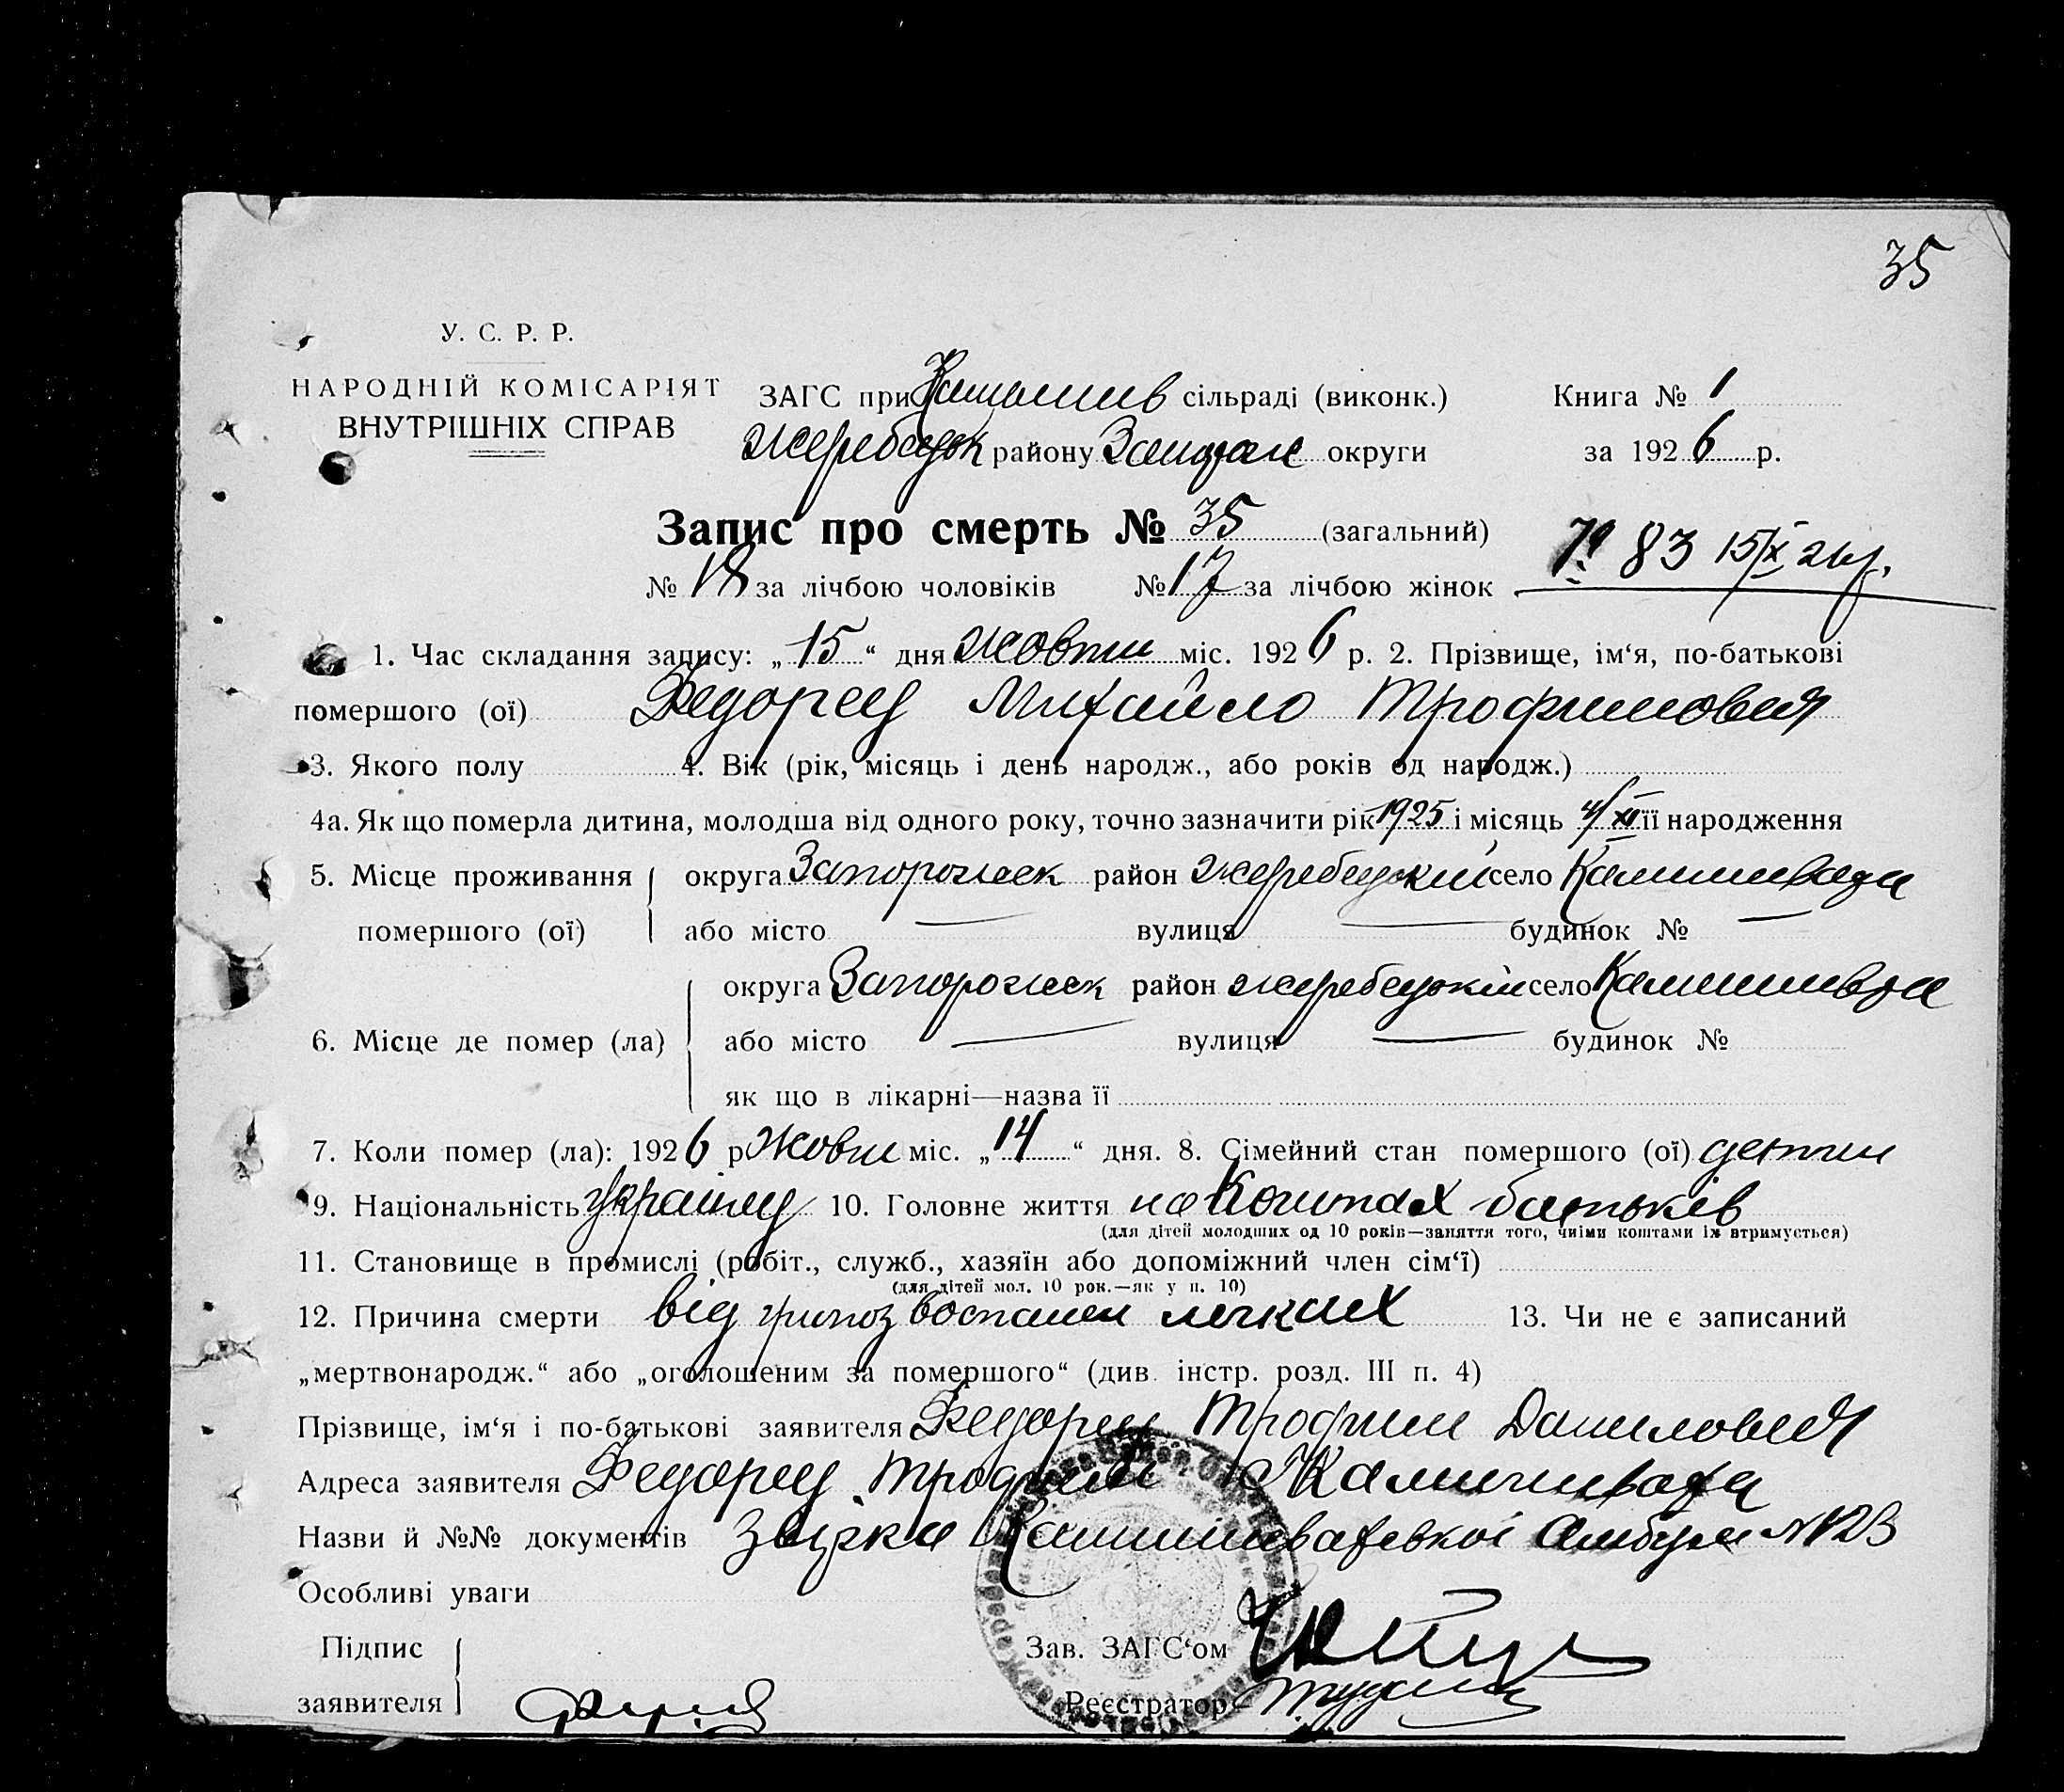 35
У. С. Р. Р.
НАРОДНІЙ КОМІСАРІЯТ
ВНУТРІШНІХ СПРАВ
ЗАГС при сільраді (виконк.)
Жеребецьк району округи
Книга № 1
за 1926 р.
Запис про смерть № 35 (загальний)
№ 18 за лічбою чоловіків № 17 за лічбою жінок
83 15/X 26 р.
1. Час складання запису: „15“ дня жовтн міс. 1926 р. 2. Прізвище, ім‘я, по-батькові
помершого (ої) Федорец Михайло Трофимович
3. Якого полу 4. Вік (рік, місяць і день народж., або років од народж.)
4а. Як що померла дитина, молодша від одного року, точно зазначити рік 1925 і місяць 4/XI її народження
5. Місце проживання округа Запорожск район Жеребецький село Камишеваха
помершого (ої) або місто — вулиця — будинок № —
округа Запорожск район Жеребецький село
6. Місце де помер (ла) або місто — вулиця — будинок №
як що в лікарні—назва її
7. Коли помер (ла): 1926 р Жовтн міс. „14“ дня. 8. Сімейний стан помершого (ої)
9. Національність 10. Головне життя на коштах батьків
(для дітей молодших од 10 років—заняття того, чиїми коштами їх втримується)
11. Становище в промислі (робіт., служб., хазяїн або допоміжний член сім‘ї)
(для дітей мол. 10 рок.—як у п. 10)
12. Причина смерти від легких 13. Чи не є записаний
„мертвонародж.“ або „оголошеним за помершого“ (див. інстр. розд. III п. 4)
Прізвище, ім‘я і по-батькові заявителя Федорец Трофим Данилович
Адреса заявителя Федорец Трофим с Камишеваха
Назви й №№ документів Камишеватської № 123
Особливі уваги
Підпис
заявителя
Зав. ЗАГС‘ом
Реєстратор